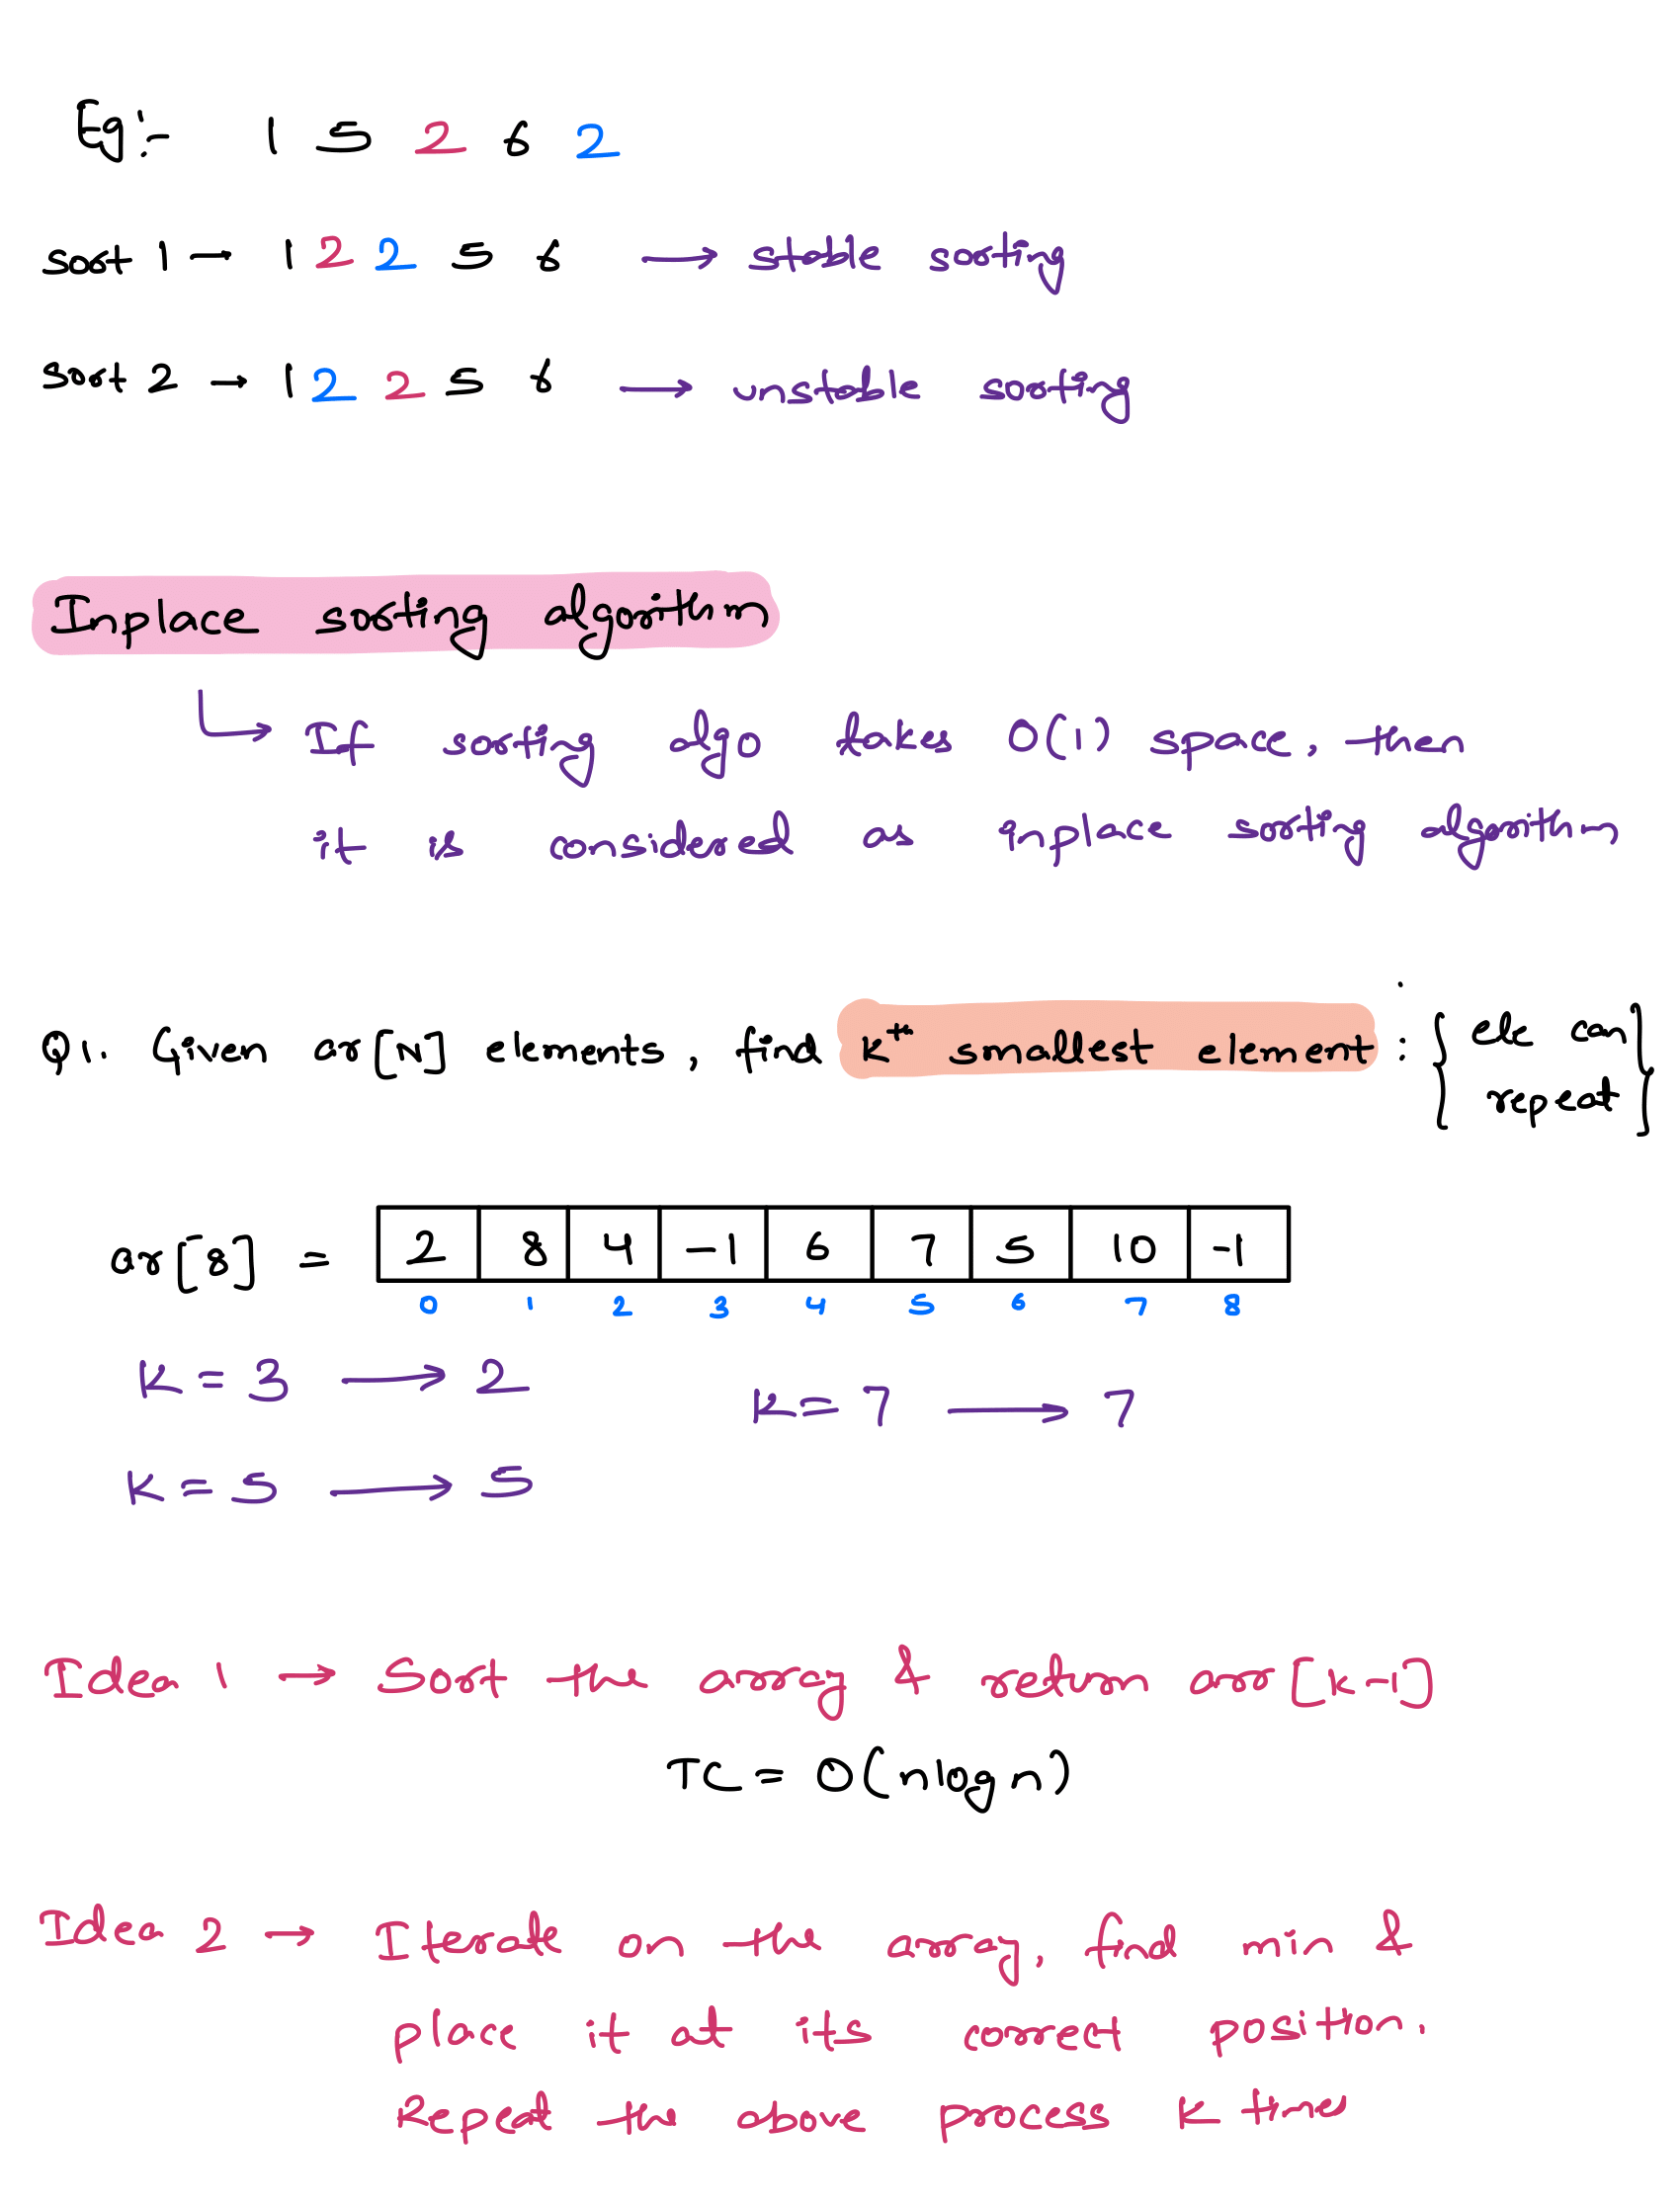 Eg:- 1 5 2 6 2
sort 1 → 1 2 2 5 6 → stable sorting
sort 2 → 1 2 2 5 6 → unstable sorting
Inplace sorting algorithm
↳ If sorting algo takes O(1) space, then
it is considered as inplace sorting algorithm
Q1. Given ar[N] elements, find kth smallest element : { ele can
repeat }
ar[8] = 2 8 4 -1 6 7 5 10 -1
0 1 2 3 4 5 6 7 8
K = 3 → 2
K = 7 → 7
K = 5 → 5
Idea 1 → Sort the array & return arr[k-1]
TC = O(nlogn)
Idea 2 → Iterate on the array, find min &
place it at its correct position.
Repeat the above process K times